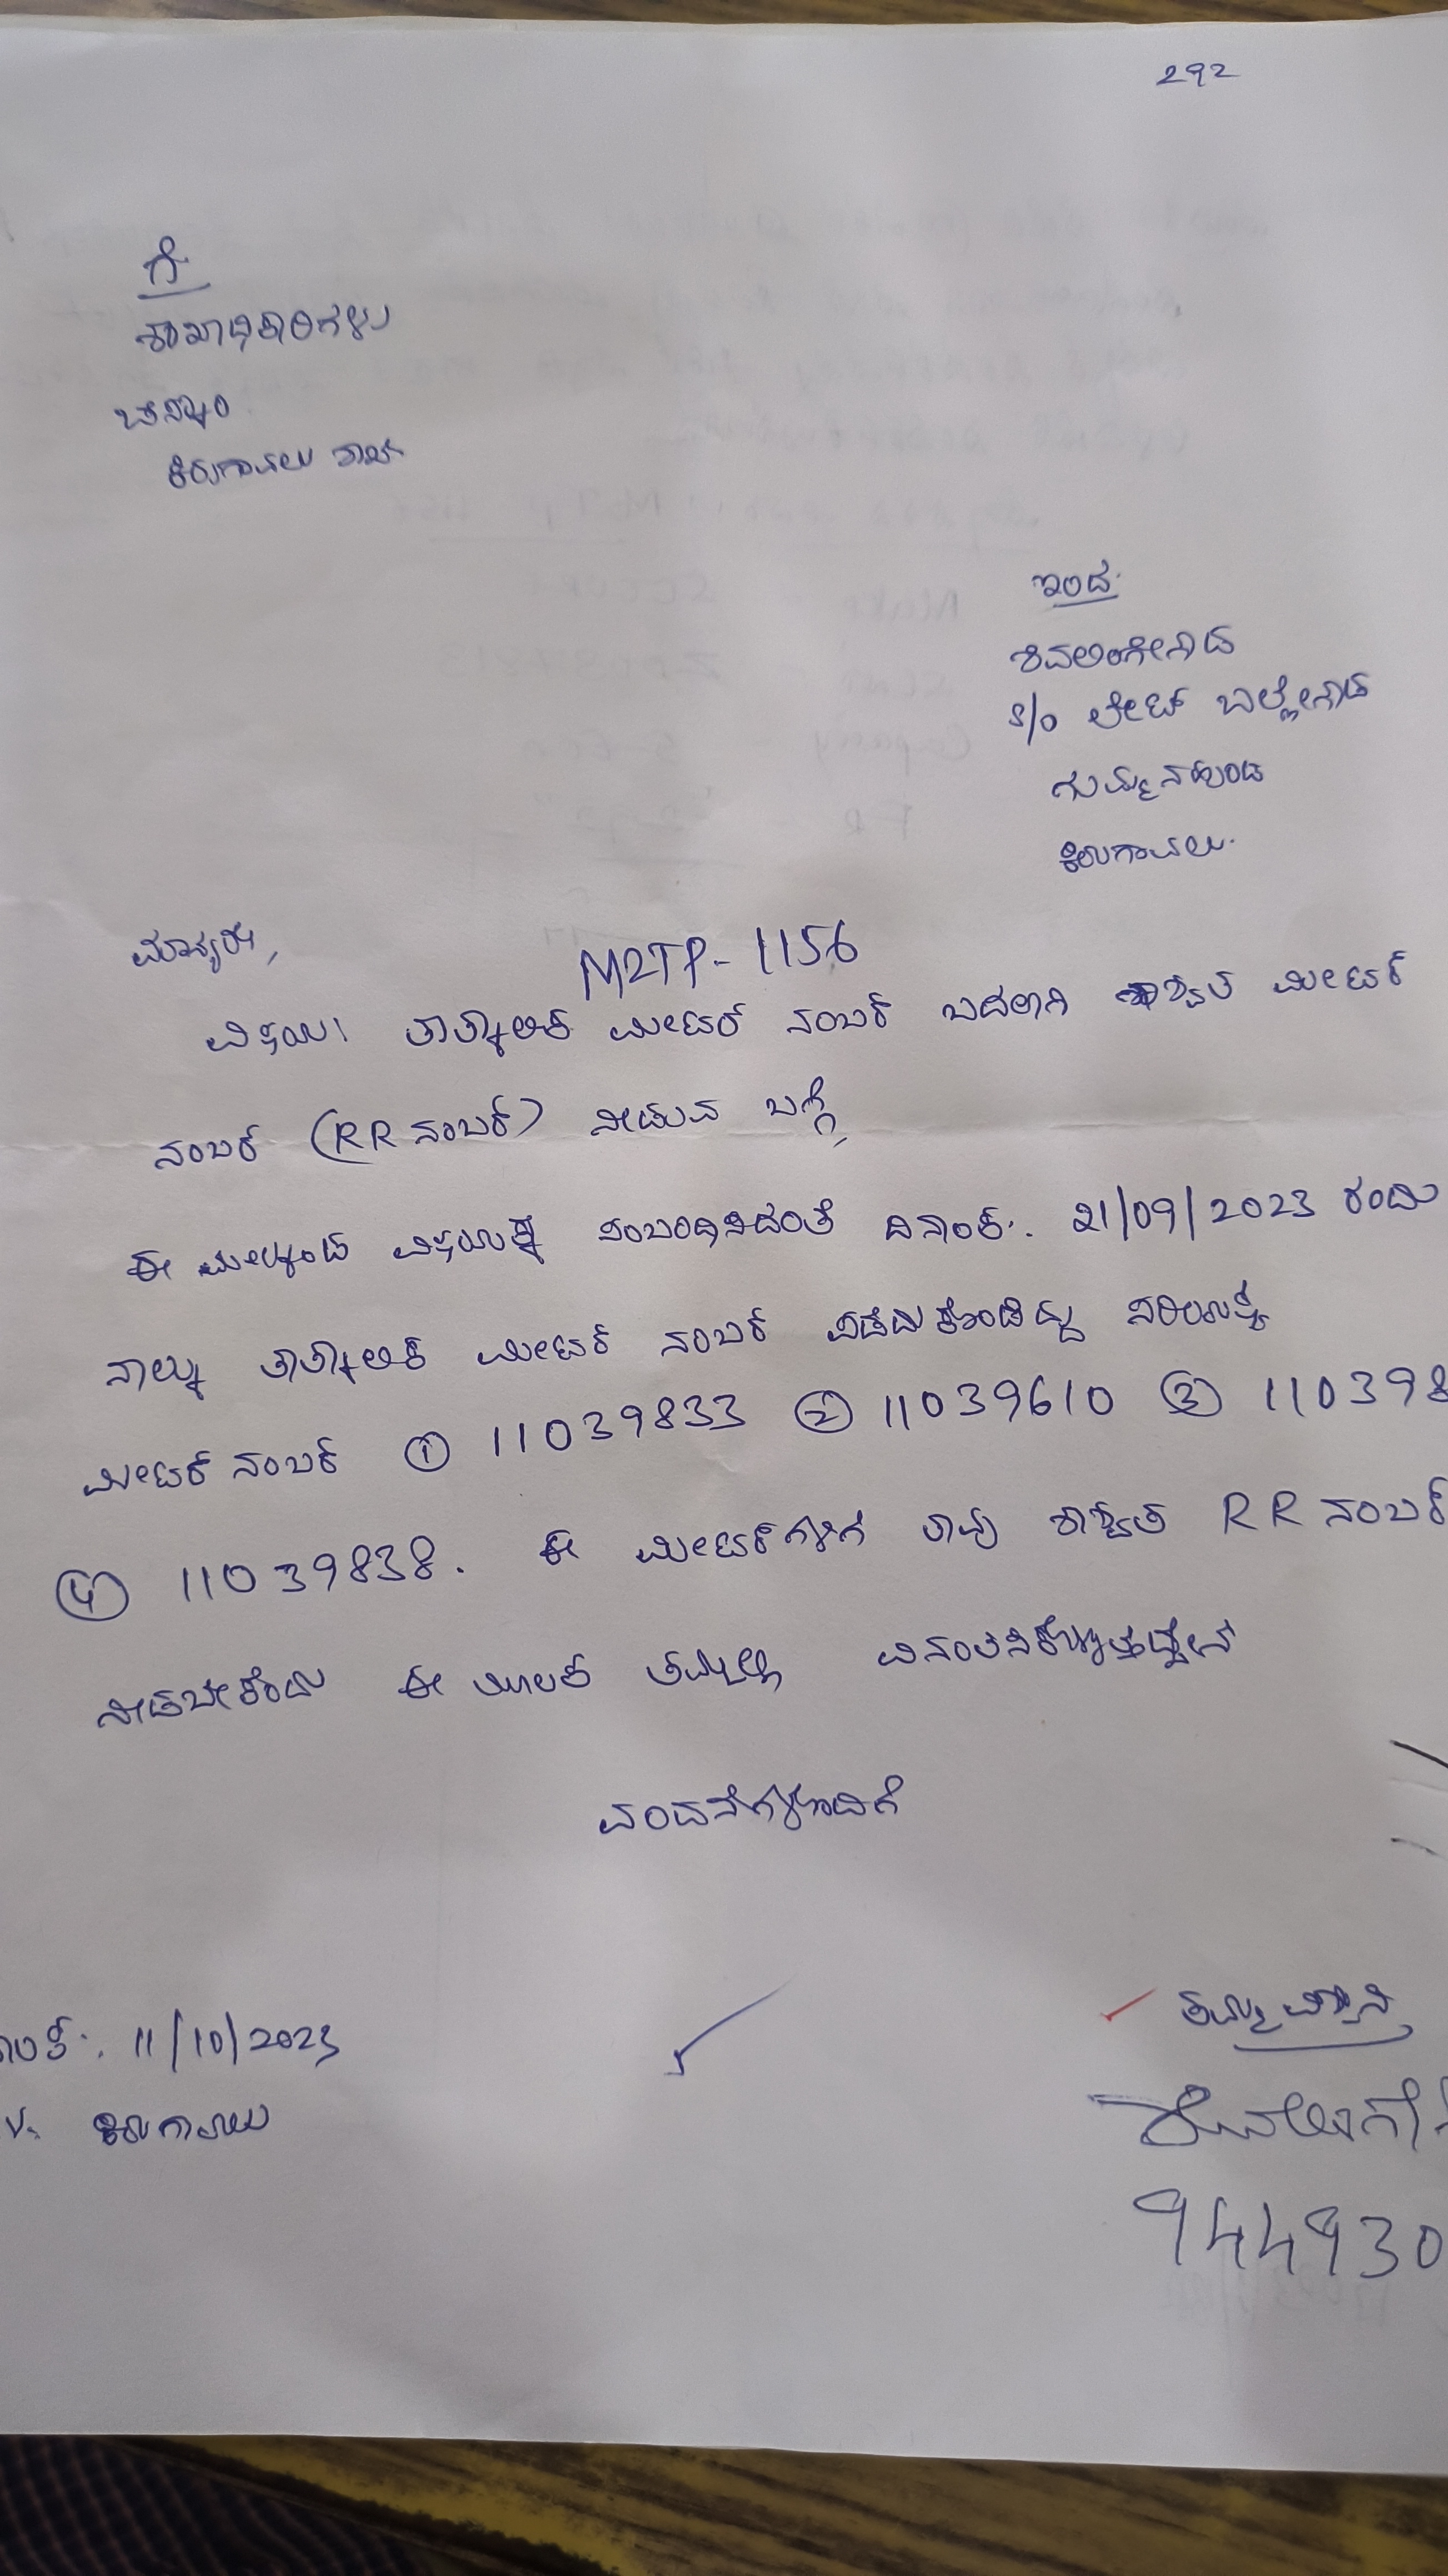 292
ಗೆ
ಶಾಖಾಧಿಕಾರಿಗಳು
ಚೆಸ್ಕಾಂ
ಕಿರುಗಾವಲು ಶಾಖೆ
ಇಂದ
ಶಿವಲಿಂಗೇಗೌಡ
S/O ಲೇಟ್ ಬಲ್ಲೇಗೌಡ
ಕಿರುಗಾವಲು.
ಮಾನ್ಯರೇ,
M2TP-1156
ವಿಷಯ: ತಾತ್ಕಾಲಿಕ ಮೀಟರ್ ನಂಬರ್ ಬದಲಾಗಿ ಶಾಶ್ವತ ಮೀಟರ್
ನಂಬರ್ (RR ನಂಬರ್) ನೀಡುವ ಬಗ್ಗೆ,
ಈ ಮೇಲ್ಕಂಡ ವಿಷಯಕ್ಕೆ ಸಂಬಂಧಿಸಿದಂತೆ ದಿನಾಂಕ: 21/09/2023 ರಂದು
ನಾಲ್ಕು ತಾತ್ಕಾಲಿಕ ಮೀಟರ್ ನಂಬರ್ ಪಡೆದುಕೊಂಡಿದ್ದು ಸರಿಯಷ್ಟೆ
ಮೀಟರ್ ನಂಬರ್ ① 11039833 ② 11039610 ③ 110398
④ 11039838. ಈ ಮೀಟರ್‌ಗಳಿಗೆ ತಾವು ಶಾಶ್ವತ RR ನಂಬರ್
ನೀಡಬೇಕೆಂದು ಈ ಮೂಲಕ ತಮ್ಮಲ್ಲಿ ವಿನಂತಿಸಿಕೊಳ್ಳುತ್ತಿದ್ದೇನೆ
ವಂದನೆಗಳೊಂದಿಗೆ
ತಮ್ಮ ವಿಶ್ವಾಸಿ
11/10/2023
ಕಿರುಗಾವಲು
ಶಿವಲಿಂಗೇ
944930